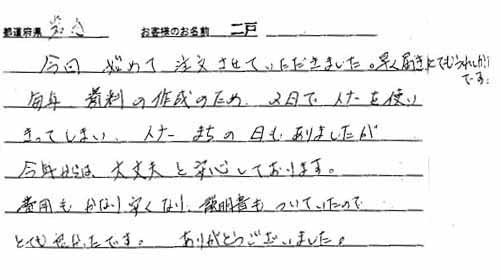 都道府県 お客様のお名前 二戸
今回 始めて 注文させていただきました。早く届きとてもうれしいです。
毎年 資料の作成のため、2日で トナーを使い
きってしまい、トナーまちの日もありましたが
今年からは 大丈夫と安心しております。
費用もかなり安くなり、説明書もついていたので
とてもよかったです。 ありがとうございました。